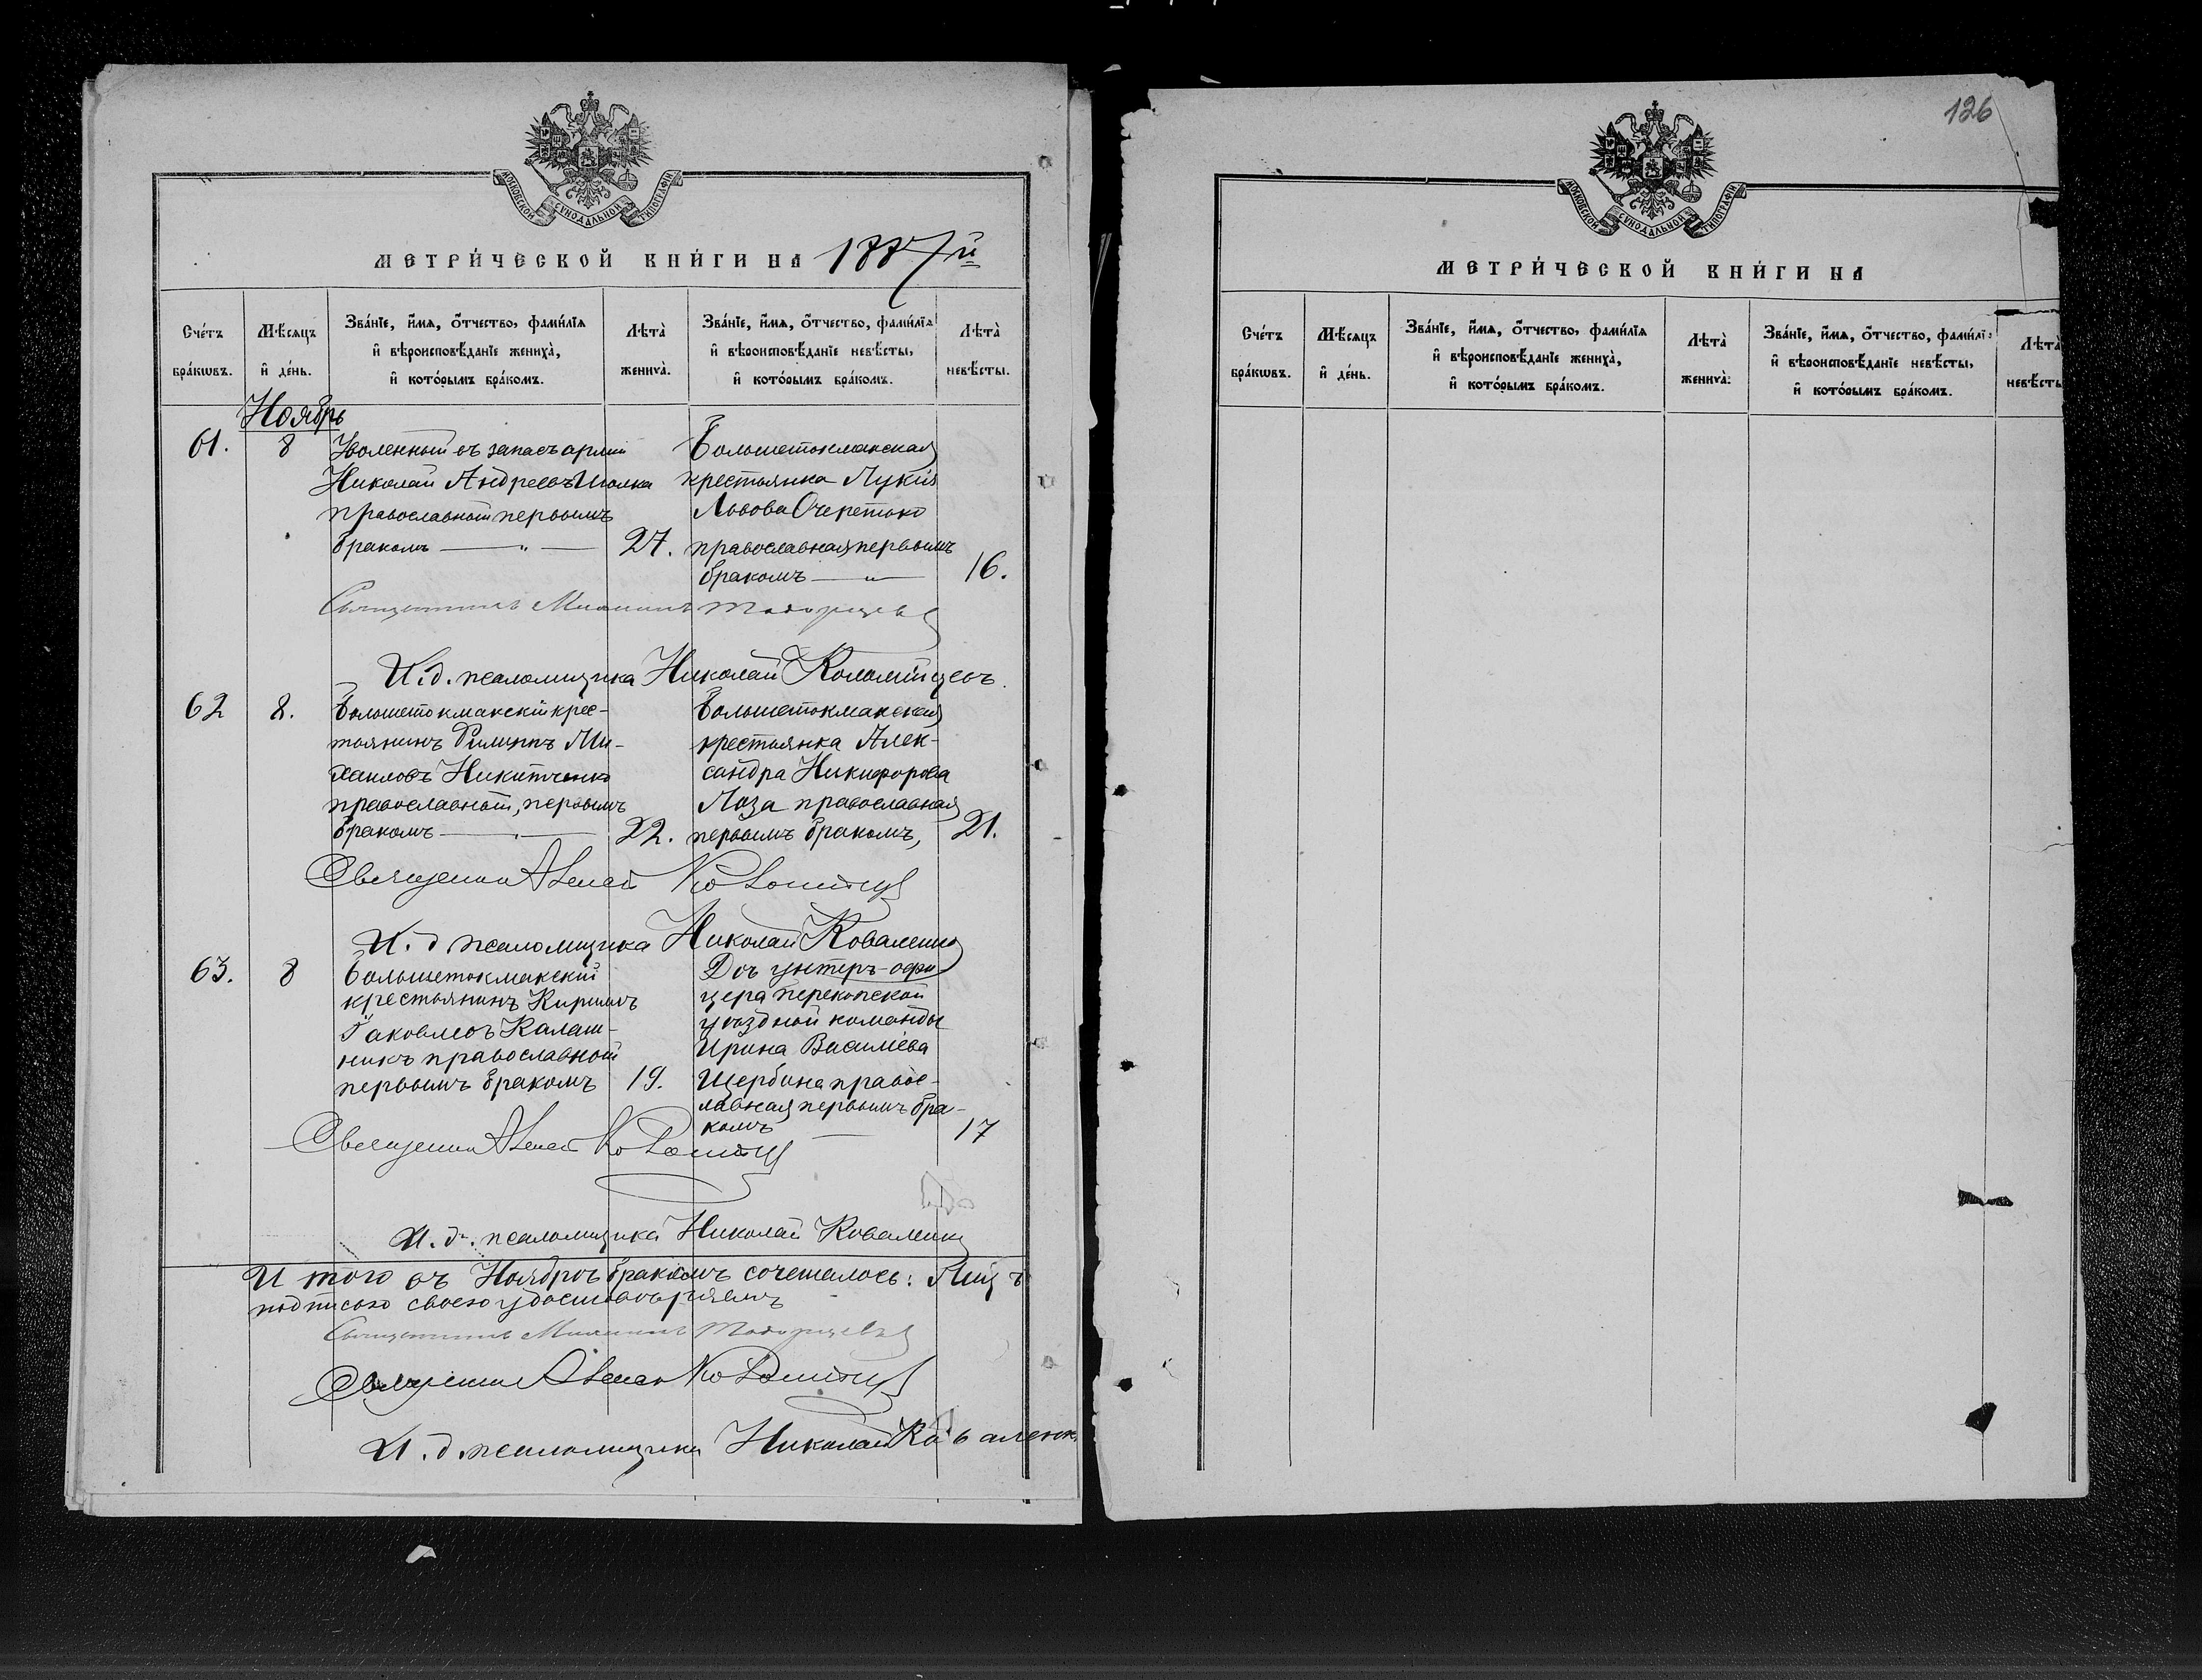 126
МОСКОВСКОЙ СУНОДАЛЬНОЙ ТИПОГРАФІИ
МЕТРИ́ЧЕСКОЙ КНИ́ГИ НА 1887 й
Сче́тъ бра́кѡвъ.
Мѣ́сяцъ и де́нь.
Зва́нїе, и҆́мѧ, ѻ҆́тчество, фамилїѧ и҆ вѣроисповѣ́данїе жениха̀, и҆ кото́рымъ бра́комъ.
Лѣта̀ жениха̀.
Зва́нїе, и҆́мѧ, ѻ҆́тчество, фами́лїѧ и҆ вѣроисповѣ́данїе невѣ́сты, и҆ кото́рымъ бра́комъ.
Лѣта̀ невѣ́сты.
Ноябрь
61.
8
Уволенный въ запасъ арміи
Николай Андреевъ Шолка
православный первымъ
бракомъ — „ —
27.
Большетокмакская
крестьянка Лукія
Львова Очеретько
православная первымъ
бракомъ — „ —
16.
Священникъ
И. д. псаломщика Николай Коломійцевъ.
62
8.
Большетокмакскій крес-
тьянинъ Филиппъ Ми-
хаиловъ Никитченко
православный, первымъ
бракомъ —
22.
Большетокмакская
крестьянка Алек-
сандра Никифорова
Лоза православная
первымъ бракомъ,
21.
Священникъ
И. д псаломщика Николай Коваленко
63.
8
Большетокмакскій
крестьянинъ Кириллъ
Іаковлевъ Калаш-
никъ православный
первымъ бракомъ
19.
Дочь унтеръ-офи
цера Перекопской
уѣздной команды
Ирина Василіева
Щербина правос-
лавная первымъ бра-
комъ —
17
Священникъ
И. д. псаломщика Николай Коваленко
И того въ Ноябрѣ бракомъ сочеталось:
подписью своею удостовѣряемъ
Священникъ
Священникъ
И. д. псаломщика Николай Коваленк
МОСКОВСКОЙ СУНОДАЛЬНОЙ ТИПОГРАФІИ
МЕТРИ́ЧЕСКОЙ КНИ́ГИ НА
Сче́тъ бра́кѡвъ.
Мѣ́сяцъ и҆ де́нь.
Зва́нїе, и҆́мѧ, ѻ҆́тчество, фами́лїѧ и҆ вѣроисповѣ́данїе жениха̀, и҆ кото́рымъ бра́комъ.
Лѣта̀ жениха̀:
Зва́нїе, и҆́мѧ, ѻ҆́тчество, фами́лї и҆ вѣроисповѣ́данїе невѣ́сты, и҆ кото́рымъ бра́комъ.
Лѣта̀ невѣ́сты